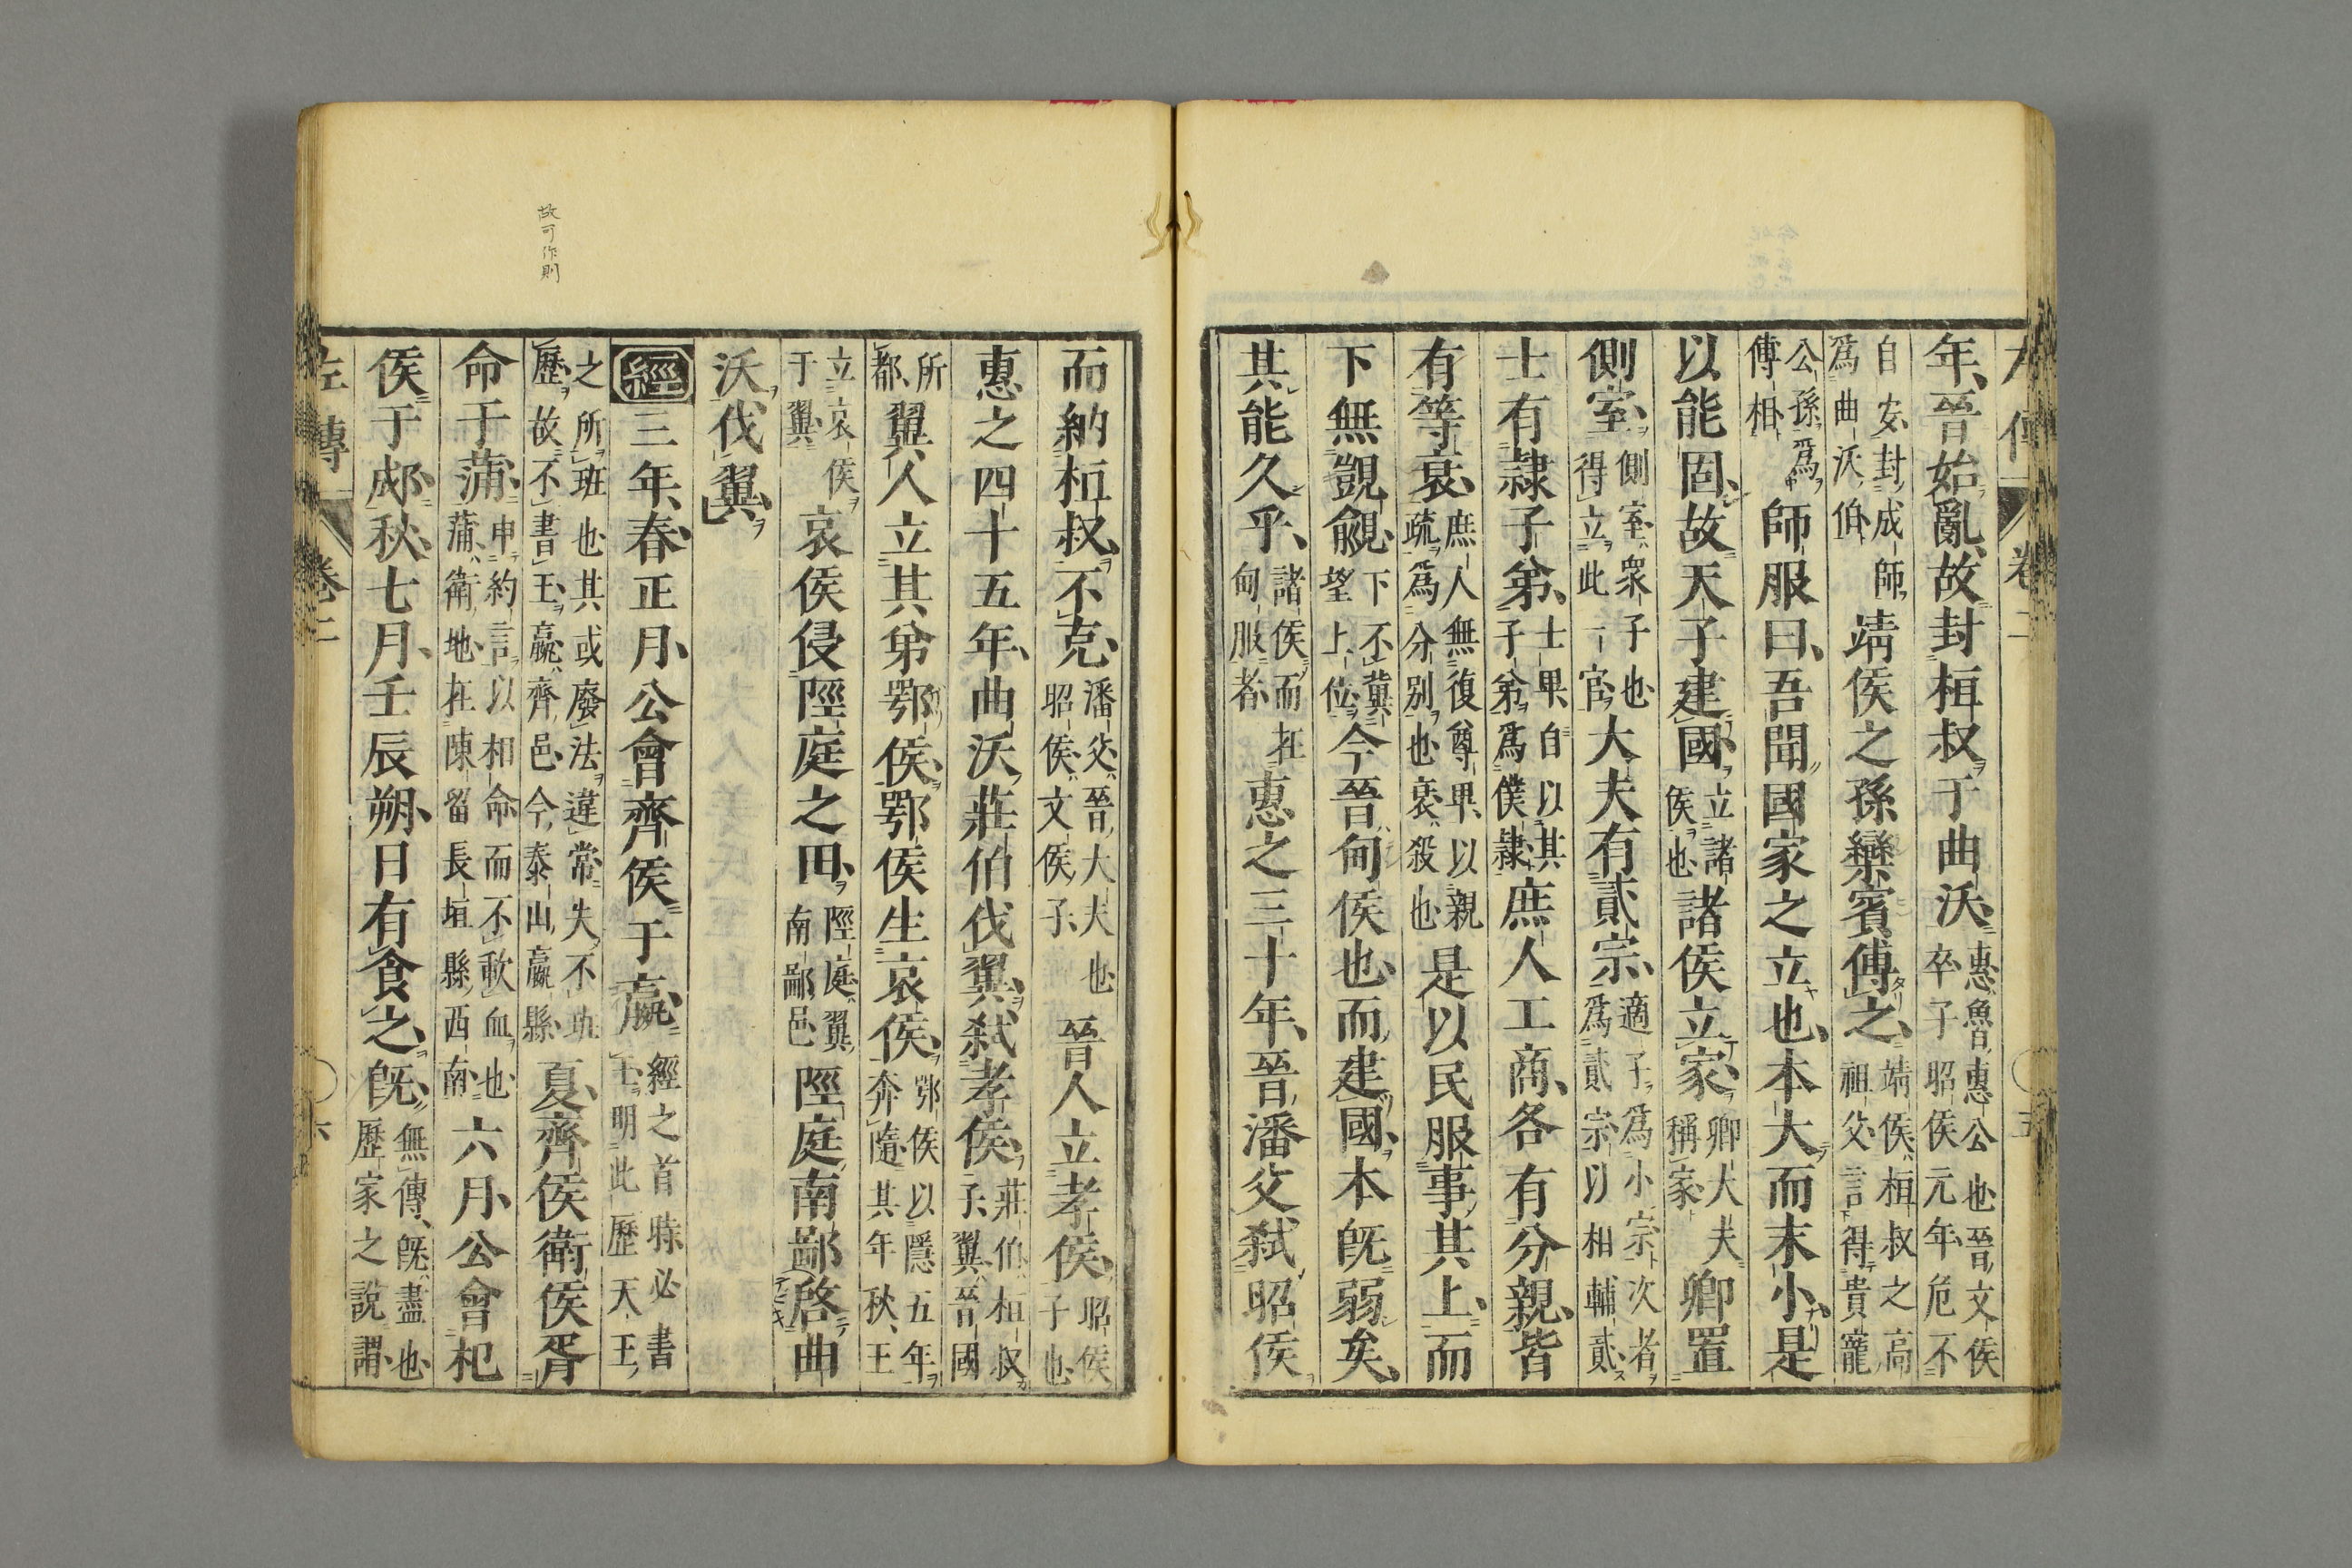 年晉始亂故封桓叔于曲沃惠魯惠公也晉文侯卒子昭侯元年危不
自安封成師爲曲沃伯靖侯之孫欒賓傅之靖侯桓叔之高祖父言得貴寵
公孫爲傅相師服曰吾聞國家之立也本大而末小是
以能固故天子建國立諸侯也諸侯立家卿大夫稱家卿置
側室側室衆子也得立此一官大夫有貳宗適子爲小宗次者爲貳宗以相輔貳
士有隸子弟士卑自以其子弟爲僕隸庶人工商各有分親皆
有等衰庶人無復尊卑以親疏爲分別也衰殺也是以民服事其上而
下無覬覦下不冀望上位今晉甸侯也而建國本旣弱矣
其能久乎諸侯而在甸服者惠之三十年晉潘父弒昭侯
而納桓叔不克潘父晉大夫也昭侯文侯子晉人立孝侯昭侯子也
惠之四十五年曲沃莊伯伐翼弒孝侯莊伯桓叔子翼晉國
所都翼人立其弟鄂侯鄂侯生哀侯鄂侯以隱五年奔隨其年秋王
立哀侯于翼哀侯侵陘庭之田陘庭翼南鄙邑陘庭南鄙啓曲
沃伐翼
經三年春正月公會齊侯于嬴經之首時必書王明此歷天王
故可作則
之所班也其或廢法違常失不班歷故不書王嬴齊邑今泰山嬴縣夏齊侯衛侯胥
命于蒲申約言以相命而不歃血也蒲衛地在陳留長垣縣西南六月公會杞
侯于郕秋七月壬辰朔日有食之旣無傳旣盡也歷家之說謂
左傳 卷二 六